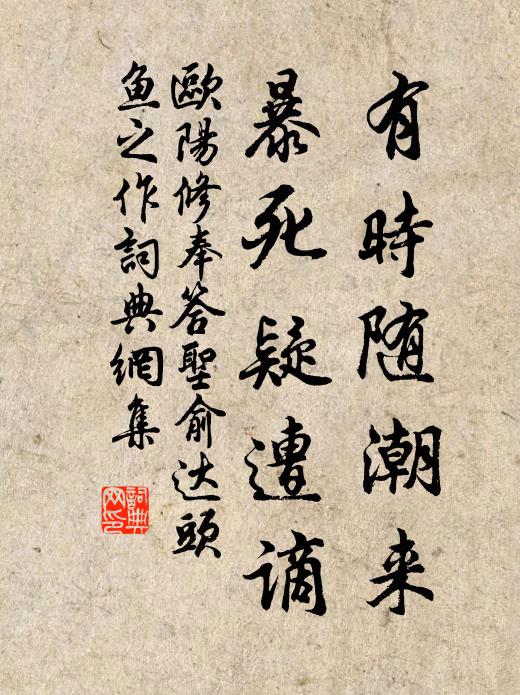 有時随潮来
暴死疑遭谪
歐陽修奉答聖俞达頭
鱼之作詞典網集
詞典
网印